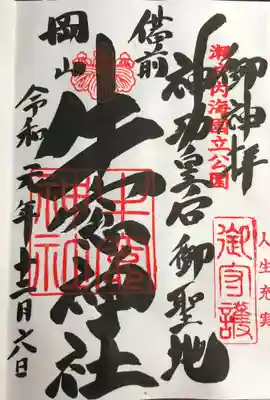 御神拝
瀬戸内海国立公園
人生充実
御守護
神功皇后御聖地
備前
牛窓神社
牛窓神社
岡山
令和元年十二月六日